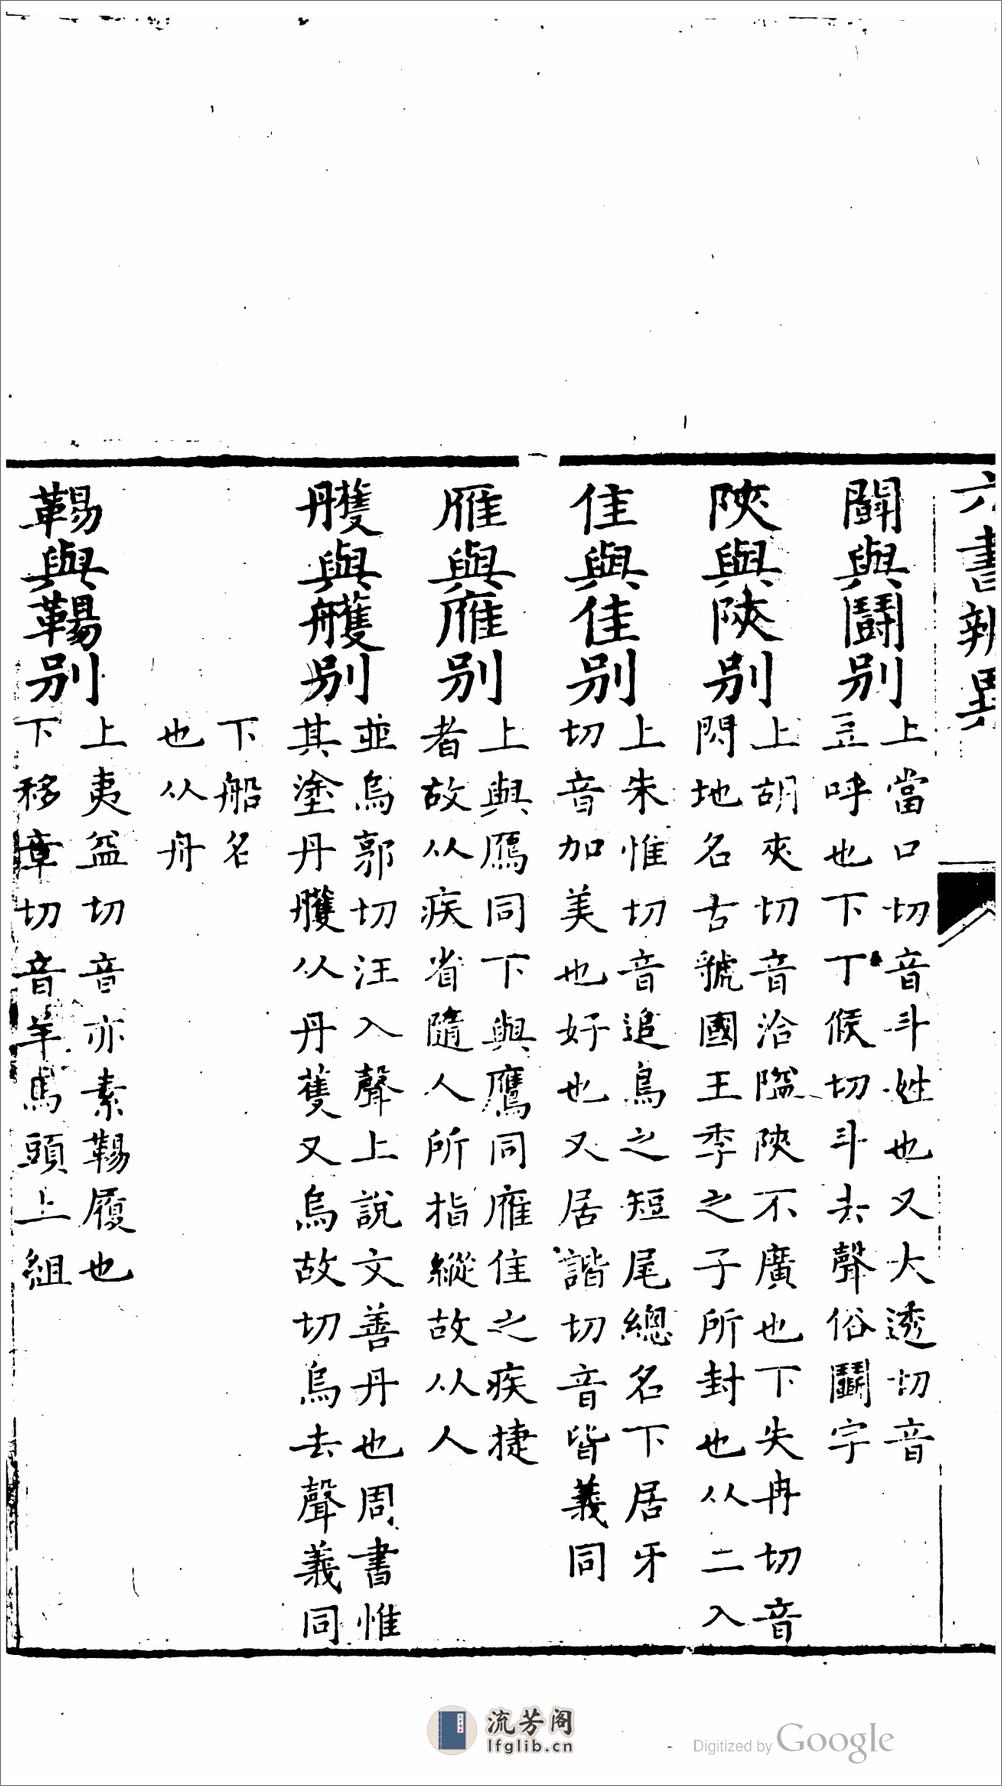 六書辨異
鬪與鬭别
上當口切音斗姓也又大透切音
豆呼也下丁候切斗去聲俗鬬字
陜與陝别
上胡夾切音洽隘陜不廣也下失冉切音
閃地名古虢國王季之子所封也从二入
隹與佳别
上朱惟切音追鳥之短尾總名下居牙
切音加美也好也又居諧切音皆義同
雁與雁别
上與鴈同下與鷹同雁隹之疾捷
者故从疾省隨人所指縱故从人
雘與艧别
並烏郭切汪入聲上說文善丹也周書惟
其塗丹雘从丹蒦又烏故切烏去聲義同
下船名
也从舟
鞨與鞨别
上夷益切音亦素鞨履也
下移章切音羊馬頭上組
流芳阁
lfglib.cn
Digitized by Google